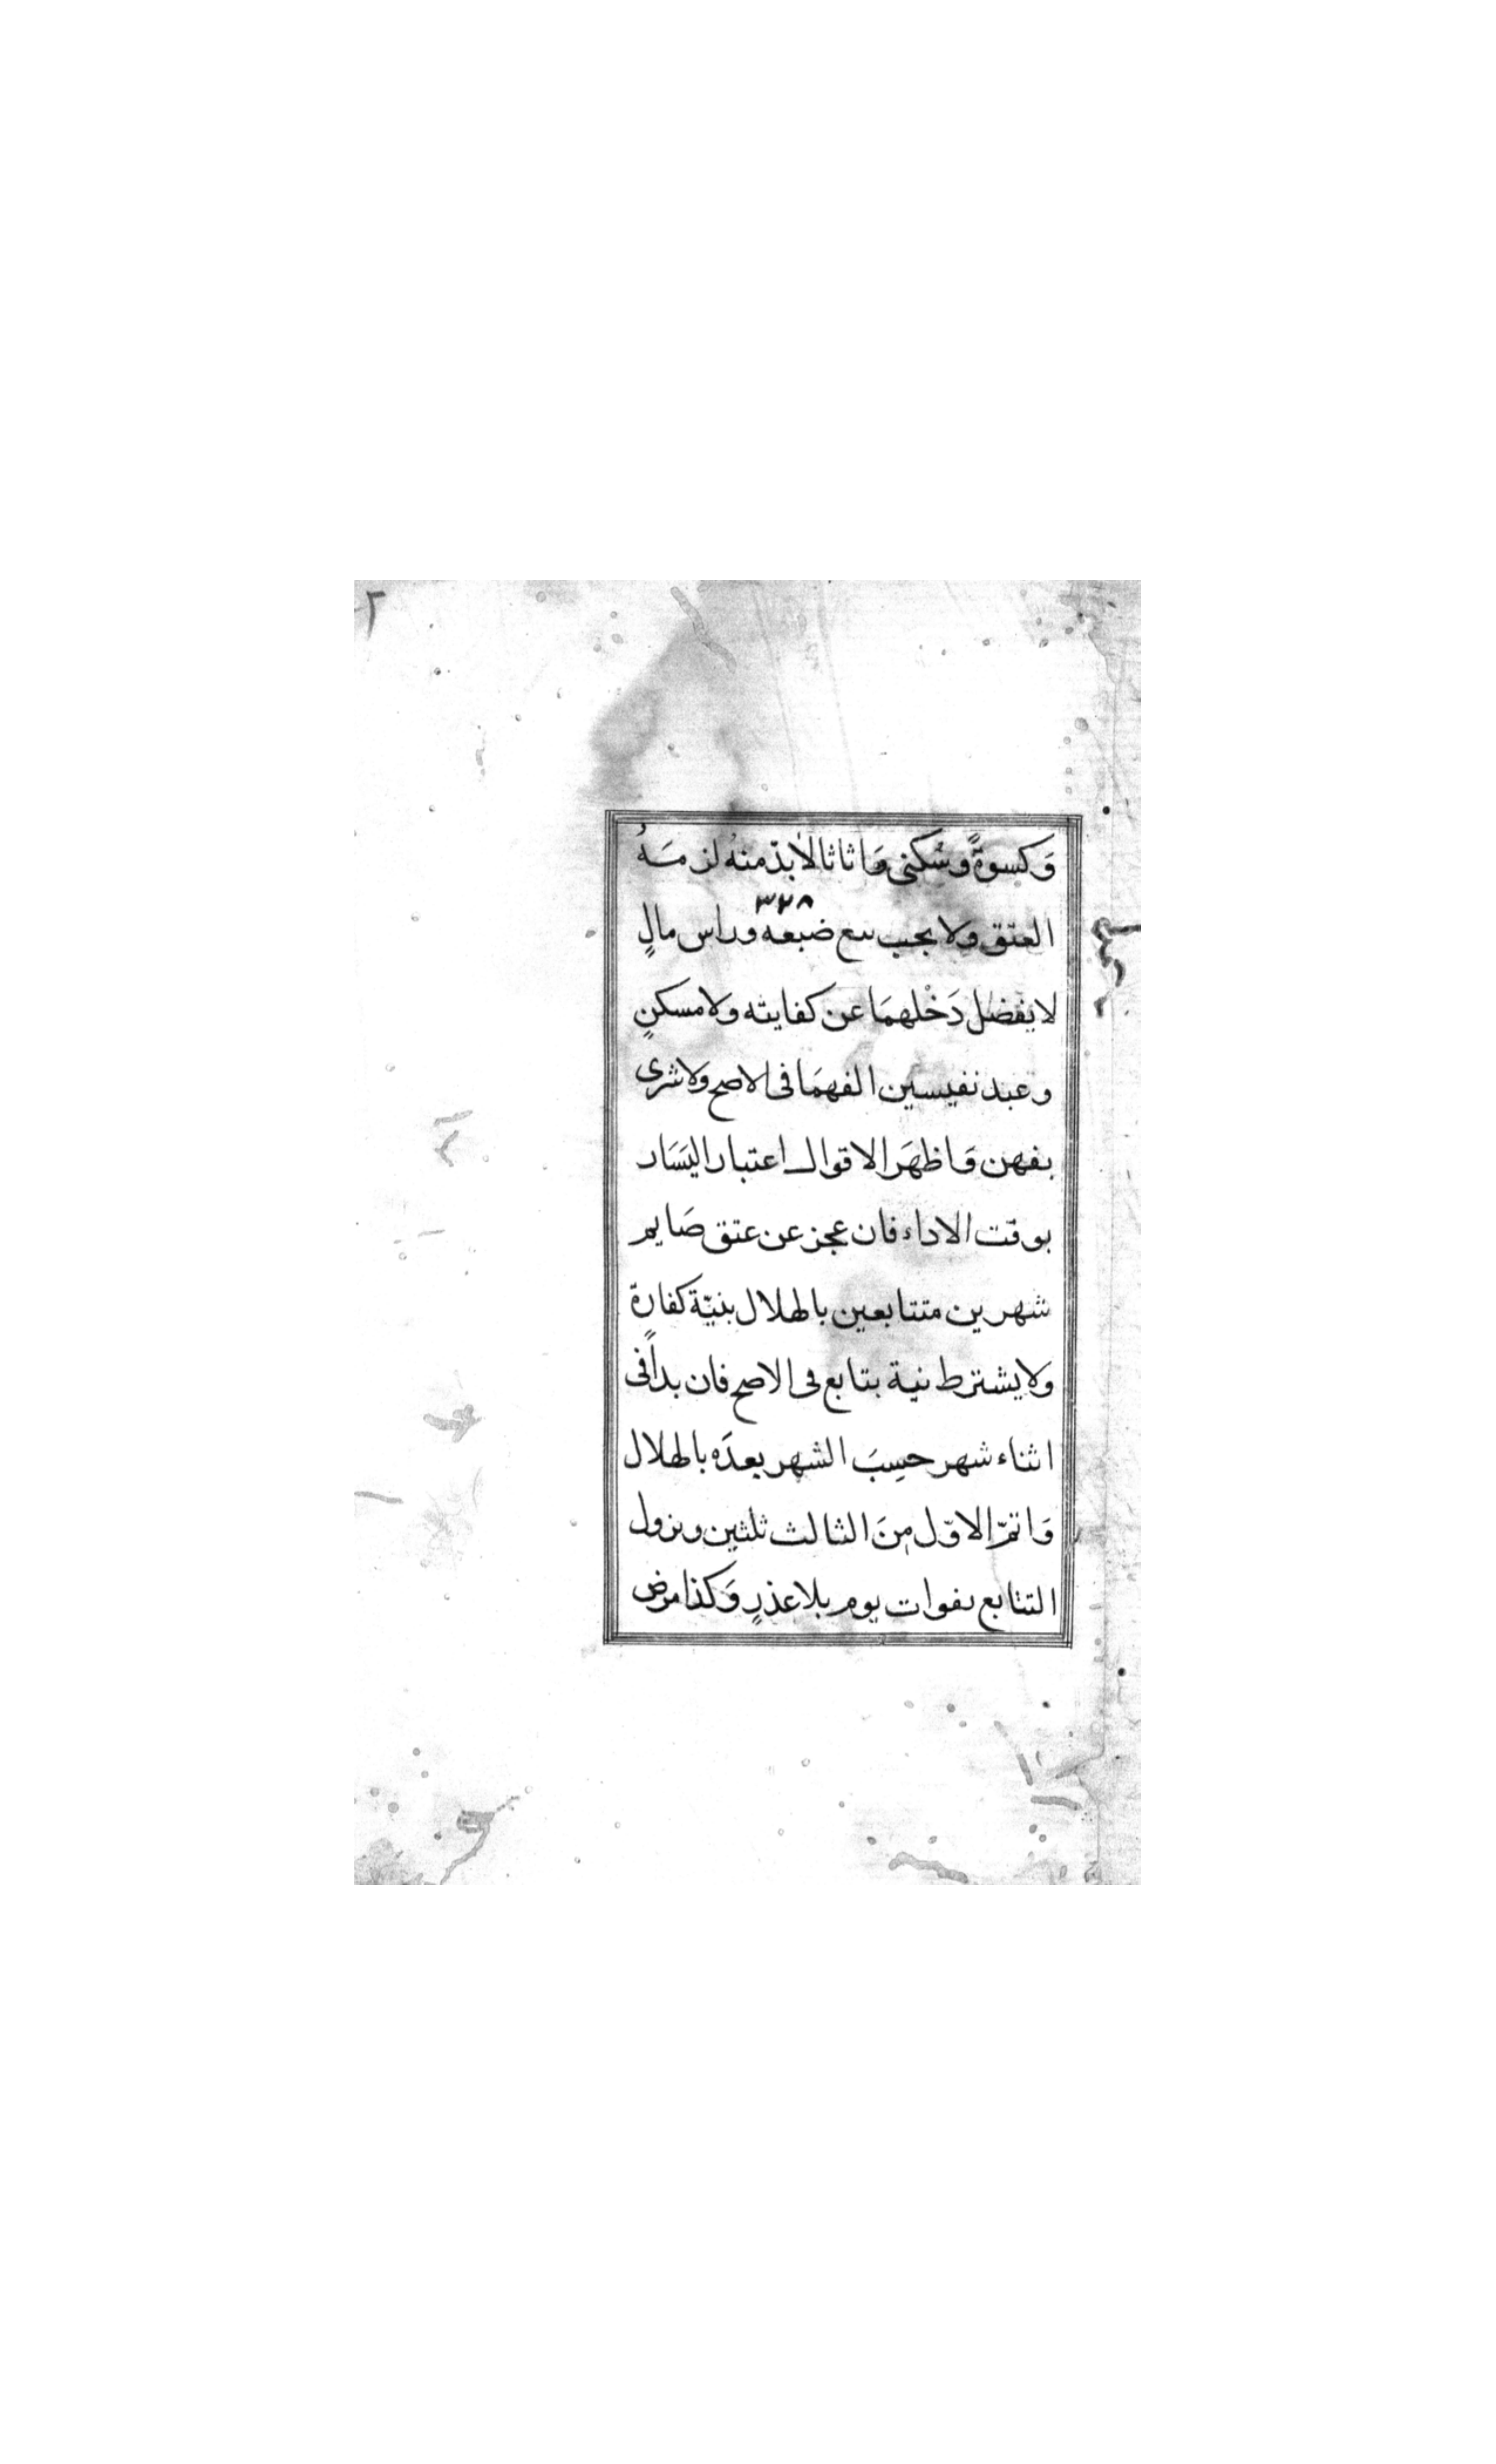 ٢
وَكسوةً وسُكنى وَاثاثا لابدّ منهُ لزمَهُ
٣٢٨
العتق ولا يجب بيع ضيعه وراس مالٍ
لا يفضل دَخْلهمَا عن كفايته ولا مسكنٍ
وعبد نفيسين الفهمَا فى الاصح ولا شرى
بغبن وَاظهَر الاقوال اعتبار اليَسَار
بوقت الاداء فان عجز عن عتق صَايم
شهرين متتابعين بالهلال بنيّة كفارة
ولا يشترط نية بتابع فى الاصح فان بدأ فى
اثناء شهر حسِبَ الشهر بعدَه بالهلال
وَاتمّ الاوّل منَ الثالث ثلثين ويزول
التتابع بفوات يوم بلا عذرٍ وَكذا مرض